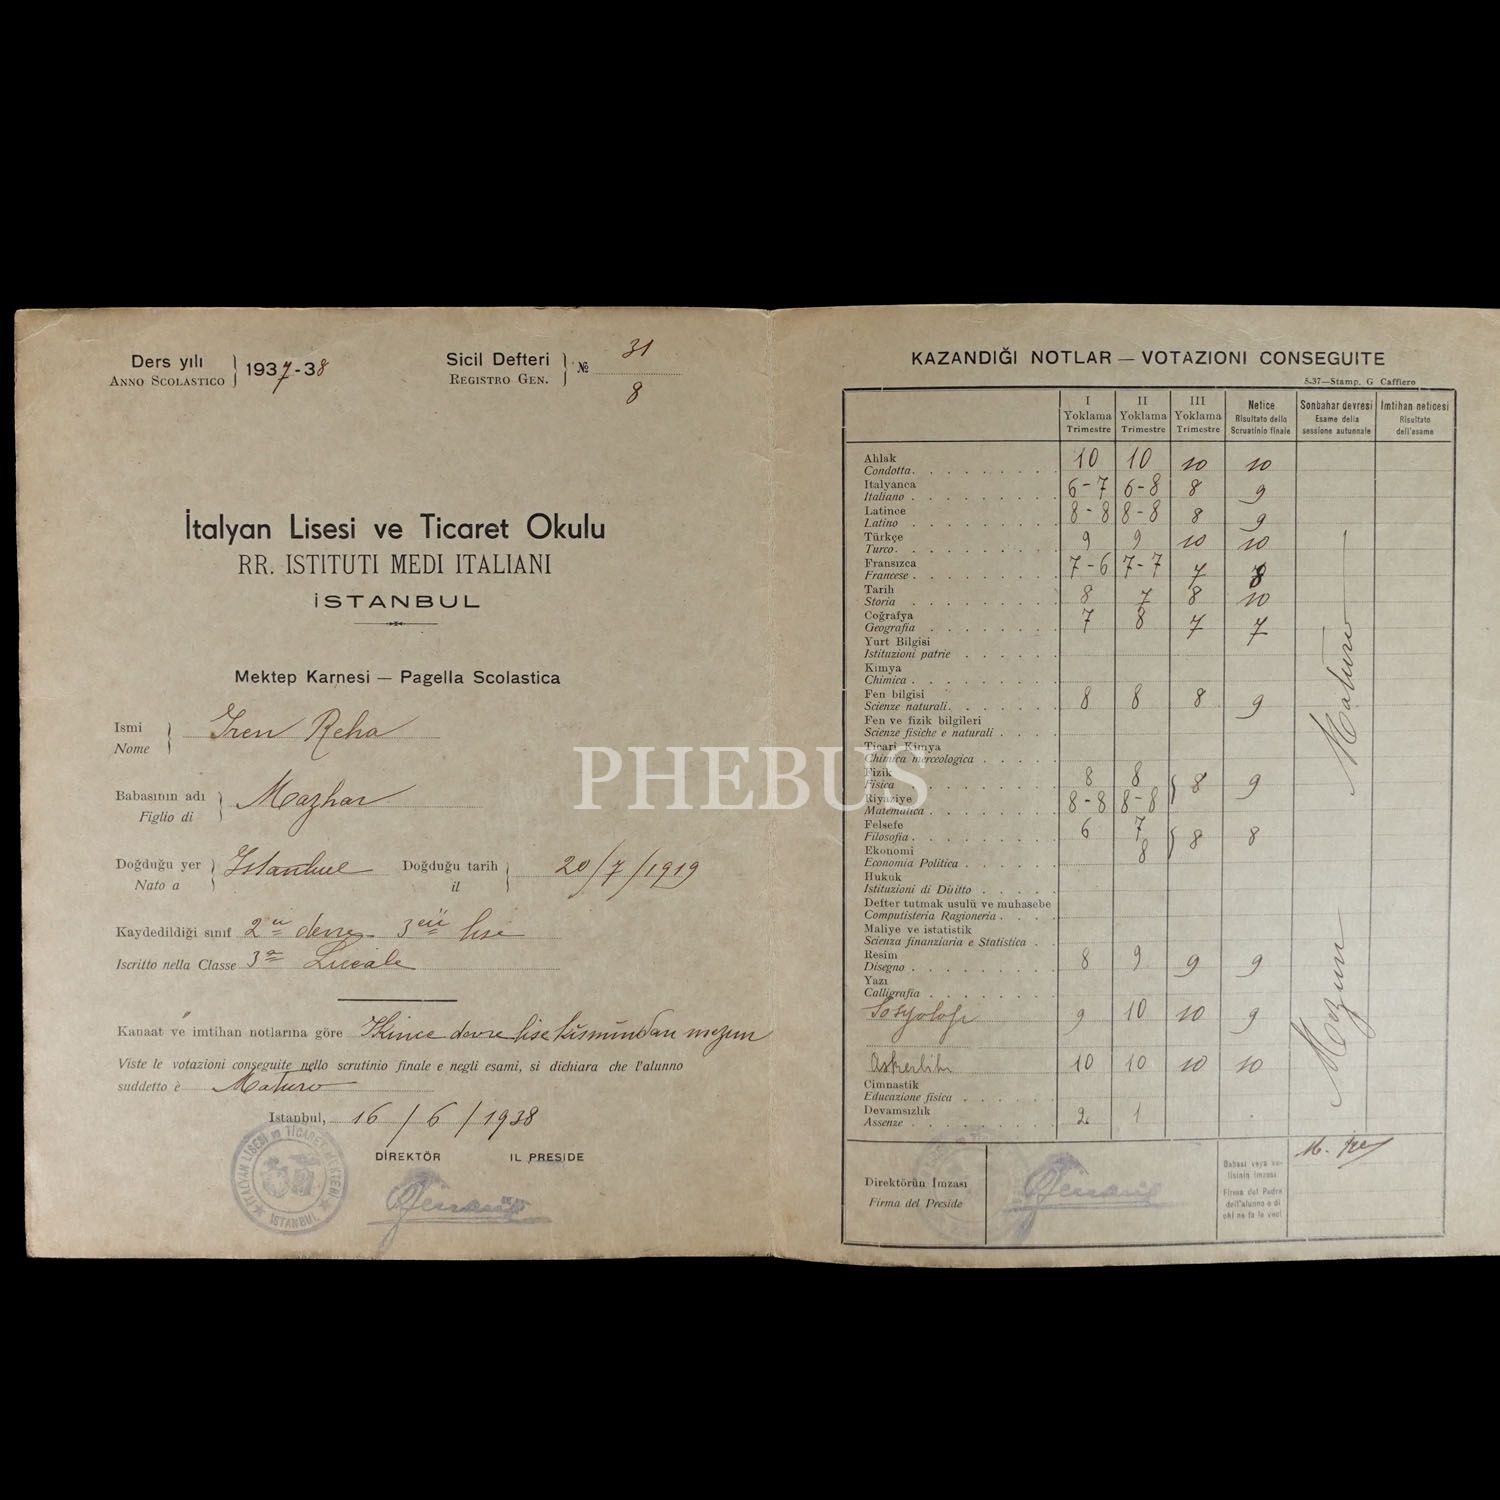 Ders yılı
ANNO SCOLASTICO
1937-38
Sicil Defteri
REGISTRO GEN.
№ 31
8
İtalyan Lisesi ve Ticaret Okulu
RR. ISTITUTI MEDI ITALIANI
İSTANBUL
Mektep Karnesi — Pagella Scolastica
Ismi
Nome
Iren Reha
Babasının adı
Figlio di
Mazhar
Doğduğu yer
Nato a
Istanbul
Doğduğu tarih
il
20/7/1919
Kaydedildiği sınıf 2ci devre 3cü lise
Iscritto nella Classe 3a Liceale
Kanaat ve imtihan notlarına göre Ikince devre lise kismindan mezun
Viste le votazioni conseguite nello scrutinio finale e negli esami, si dichiara che l'alunno
suddetto è Maturo
Istanbul, 16/6/1938
DİREKTÖR IL PRESIDE
İTALYAN LİSESİ ve TİCARET MEKTEBİ
İSTANBUL
KAZANDIĞI NOTLAR — VOTAZIONI CONSEGUITE
5-37—Stamp. G Caffiero
I Yoklama Trimestre
II Yoklama Trimestre
III Yoklama Trimestre
Netice Risultato dello Scruatinio finale
Sonbahar devresi Esame della sessione autunnale
Imtihan neticesi Risultato dell'esame
Ahlak
Condotta 10 10 10 10
Italyanca
Italiano 6-7 6-8 8 9
Latince
Latino 8-8 8-8 8 9
Türkçe
Turco 9 9 10 10
Fransızca
Francese 7-6 7-7 7 8
Tarih
Storia 8 7 8 10
Coğrafya
Geografia 7 8 7 7
Yurt Bilgisi
Istituzioni patrie
Kimya
Chimica
Fen bilgisi
Scienze naturali 8 8 8 9
Fen ve fizik bilgileri
Scienze fisiche e naturali
Ticari Kimya
Chimica merceologica
Fizik
Fisica 8 8
Riyaziye
Matematica 8-8 8-8 8 9
Felsefe
Filosofia 6 7
Ekonomi
Economia Politica 8 8 8
Hukuk
Istituzioni di Diritto
Defter tutmak usulü ve muhasebe
Computisteria Ragioneria
Maliye ve istatistik
Scienza finanziaria e Statistica
Resim
Disegno 8 9 9 9
Yazı
Calligrafia
Sosyoloji 9 10 10 9
Askerlik 10 10 10 10
Cimnastik
Educazione fisica
Devamsızlık
Assenze 2 1
Maturo
Mezun
Direktörün İmzası
Firma del Preside
Babası veya velisinin imzası
Firma del Padre dell'alunno e di chi ne fa le veci
PHEBUS